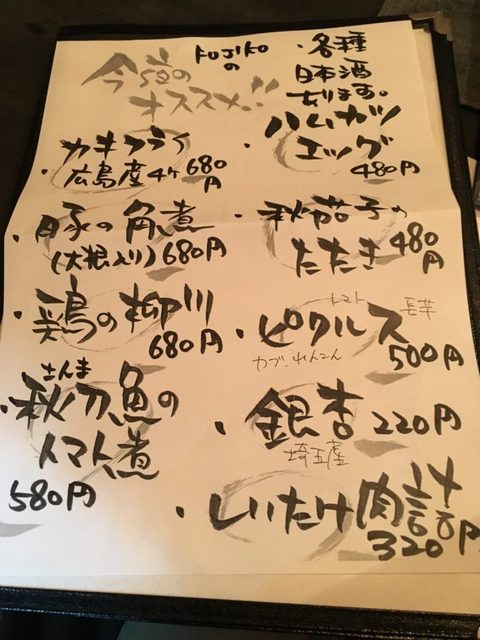 KOJIKO
の
今宵の
オススメ!!
・各種
日本酒
あります。
・カキフライ
広島産4ケ 680
円
・豚の角煮
(大根入り) 680円
・鶏の柳川
680円
さんま
・秋刀魚の
トマト煮
580円
・ハムカツ
エッグ
480円
・秋茄子の
たたき 480
円
トマト 長芋
・ピクルス
カブ、れんこん 500円
・銀杏 220円
埼玉産
・しいたけ肉詰
320円